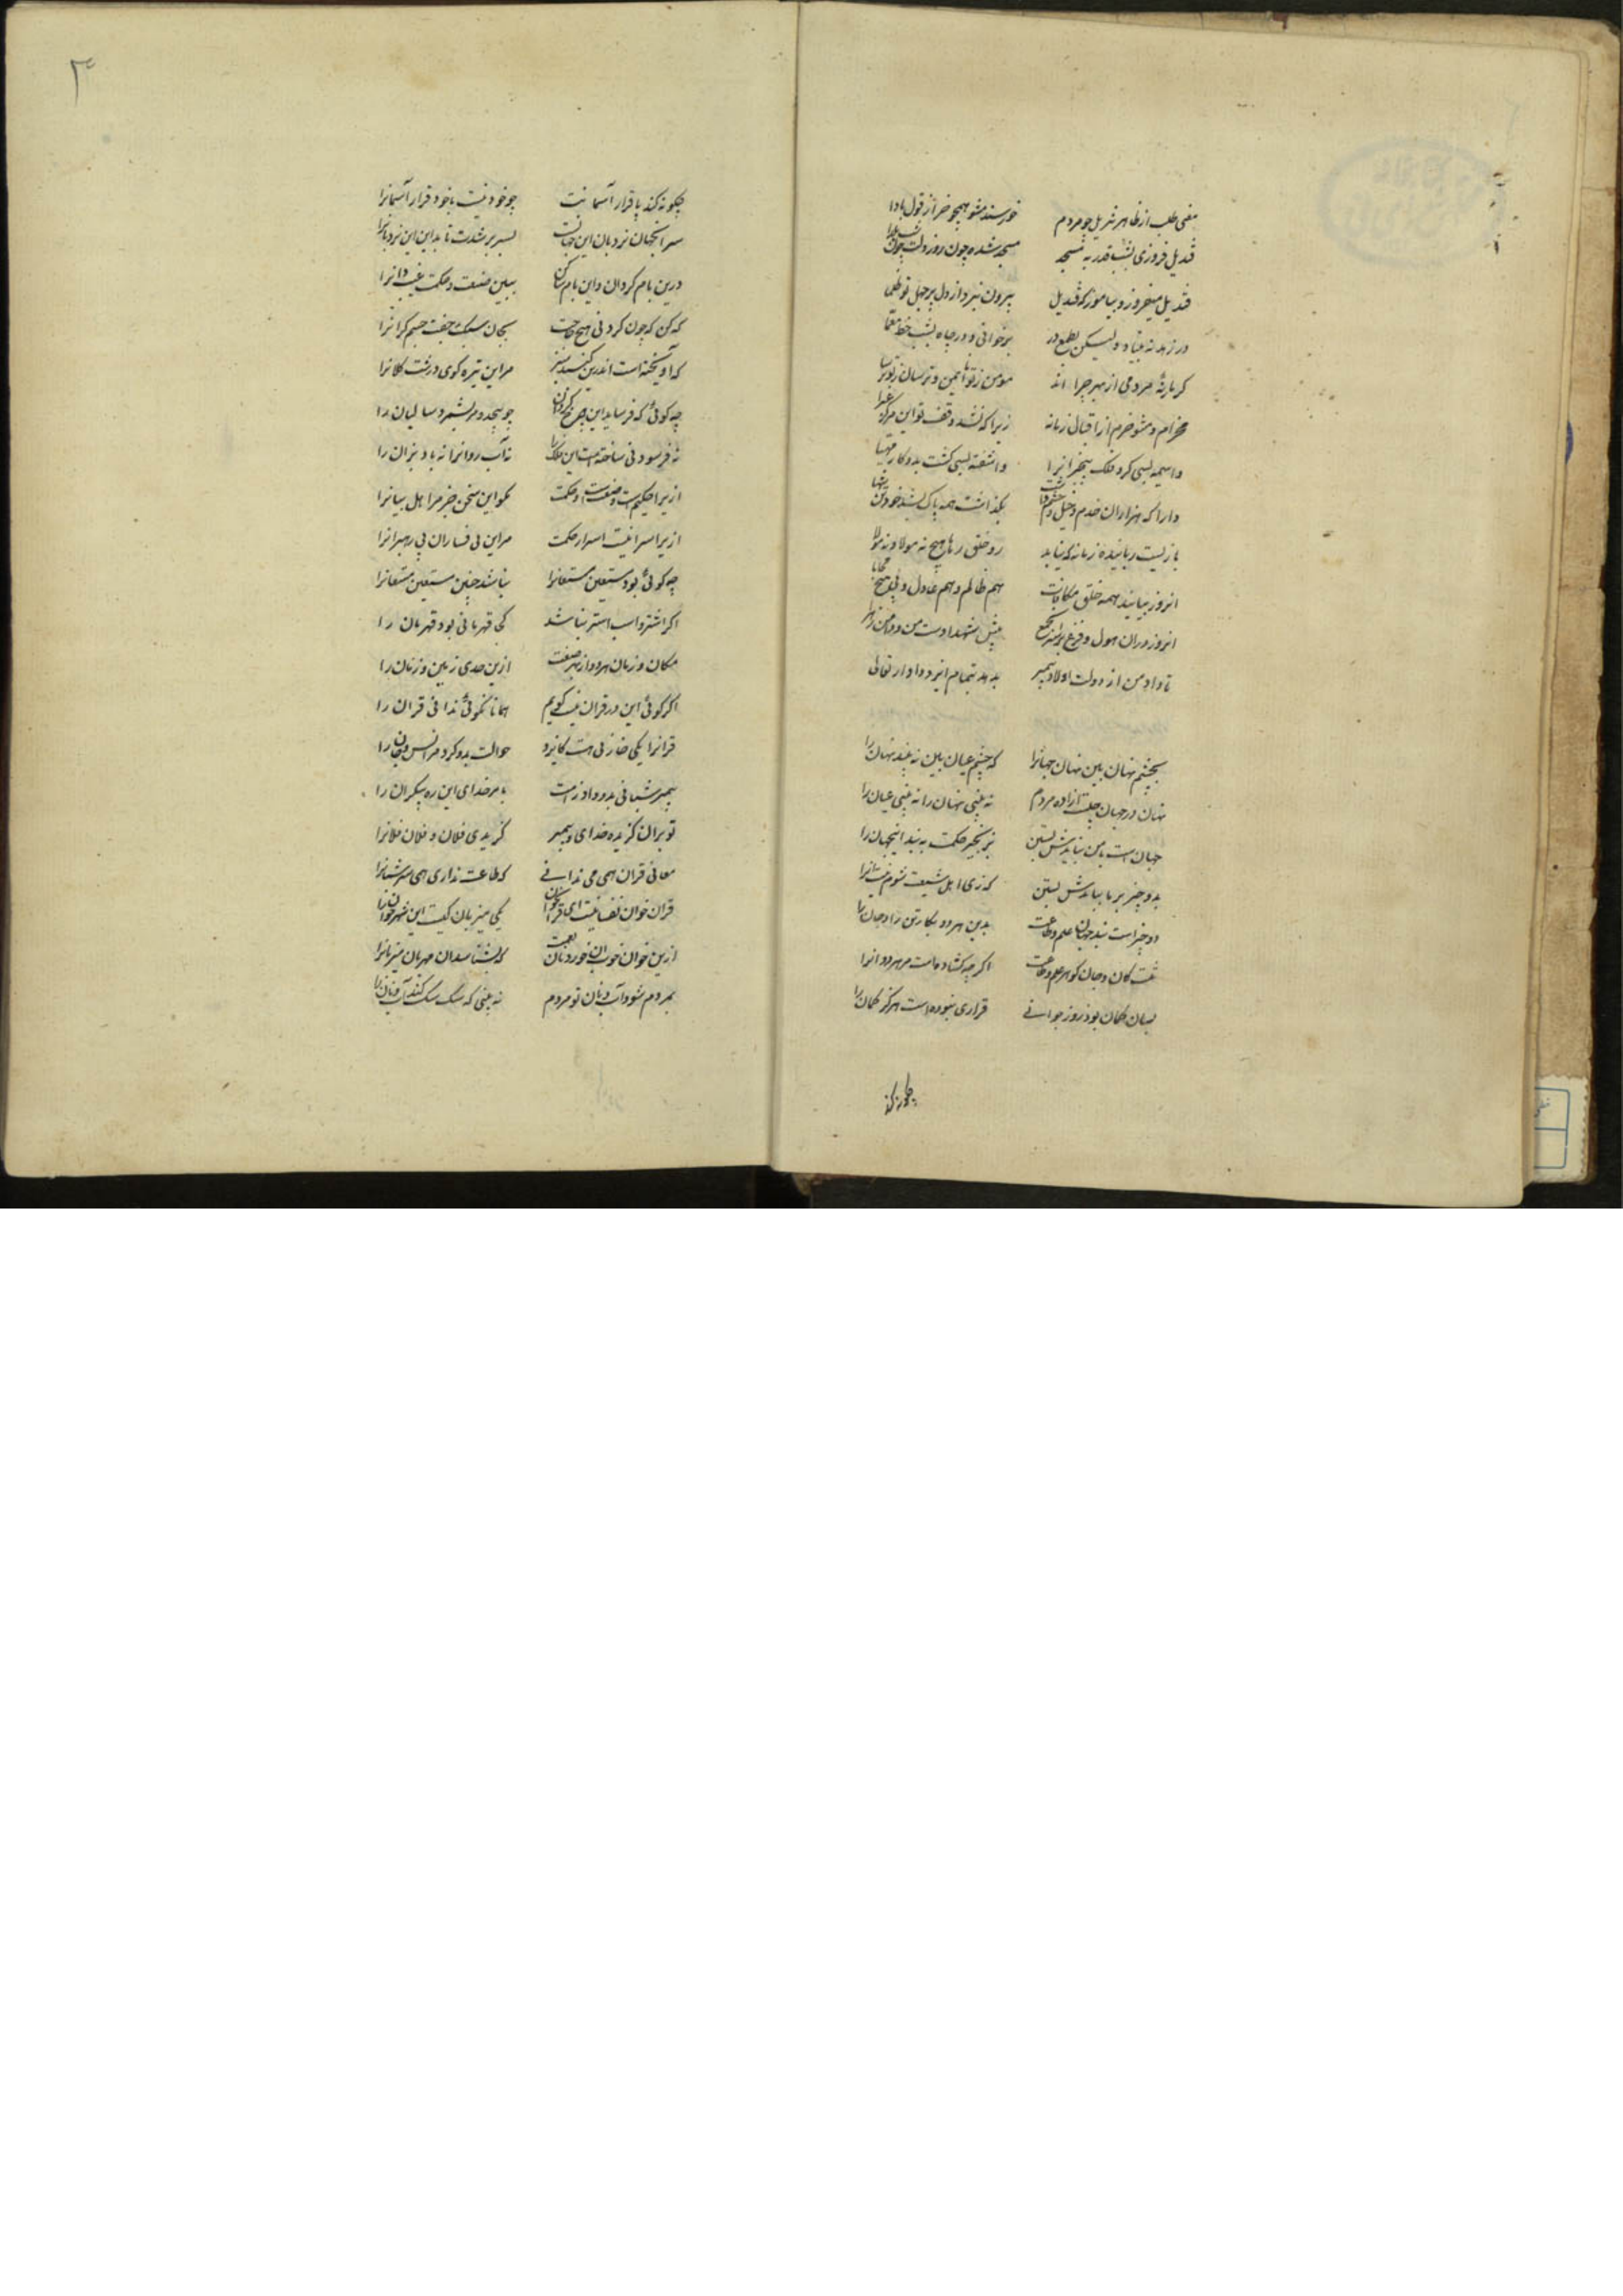 معنی طلب از ظاهر تنزیل چو مردم خورسند مشو همچو خر از قول بآوا
قندیل فروزی بشب قدر به مسجد مسجد شده چون روز و دلت چون شب یلدا
قندیل میفروز و بیاموز که قندیل بیرون نبرد از دل پر جهل تو ظلما
در زهد نه بیناد ولیکن بطمع در برخوانی و در چاه بشب خط معما
گر مار نهٔ مردمی از بهر چرا اند مومن ز تو ناایمن و ترسان ز تو ترسا
مخرام و مشو خرم از اقبال زمانه زیرا که نشد وقف تو این مرکز غبرا
واسیمه بسی کرد فلک بیخبرانرا واشفته بسی گشت بدو کار مهیا
دارا که هزاران خدم و خیل و حشم داشت بگذاشت همه پاک بشد خود تن تنها
بازیست رباینده زمانه که نیابد زو خلق رها هیچ نه مولا و نه مولا
انروز بیابند همه خلق مکافات هم ظالم و هم عادل و بی هیچ محابا
انروز دران هول و فزع بر سر مجمع پیش شهدا دست من و دامن زهرا
تا داد من از دولت اولاد پیمبر بدهد بتمام ایزد دادار تعالی
بچشم نهان بین نهان جهانرا که چشم عیان بین نه بیند نهان را
نهان در جهان چیست آزاده مردم نه بینی نهان را نه بینی عیان را
جهان است بآهن نبایدش بستن بزنجیر حکمت به بند اینجهان را
بدو چیز بر ما بیایدش بستن که زی اهل شیعت شوم
دو چیز است بند جهان علم و طاعت بدین هر دو بگمار تن را و جان را
تنت کان و جان گوهر علم و طاعت اگر چه گشاد است مر هر دو انرا
بسان گمان بود روز جوانی قراری نبوده است هرگز گمان را
چگونه کند
۳
چگونه کند با قرار آسمانت چو خود نیست با خود قرار آسمانرا
سر انجهان نردبان این جهانست بسر بر شدنت باید این نردبانرا
درین بام گردان و این بام ساکن ببین صنعت و حکمت غیب دانرا
که کن که چون کرد بی هیچ حاجت بجان سبک جفت جسم گرانرا
که آویخته است اندرین گنبد سبز مر این تیره گوی درشت کلانرا
چه گوئی که فرساید این چرخ گردان چو بیحد و مر بشمرد سالیان را
نه فرسودنی ساخته است این فلک را نه آب روانرا نه باد بزان را
ازیرا حکیم است و صنعت و حکمت مگو این سخن جز مر اهل بیانرا
ازیرا سزا نیست اسرار حکمت مر این بی فساران بی رهبرانرا
چه گوئی بود مستعین مستعانرا نباشد چنین مستعین مستعانرا
اگر اشتر و اسب و استر نباشد کجا قهرمانی بود قهرمان را
مکان و زمان هر دو از بهر صنعت ازین حدی زمین و زمان را
اگر گوئی این در قران نیست گویم همانا نکوئی ندانی قران را
قرانرا یکی خازنی هست کایزد حوالت بدو کرد مر انس و جان را
پیمبر شبانی بدو داد ز امت بامر خدای این رمه بیکران را
تو بران گزیده خدای و پیمبر گزیدی فلان و فلان فلانرا
معانی قران همی می ندانی که طاعت نداری همی مر شبانرا
قران خوان نفسانیست ای قران خوان یکی میزبان کیست این شهره خوان را
ازین خوان خوب آن خورد نان نعمت که بشناسد ان مهربان میزبانرا
بمردم شود آب و نان تو مردم نه بینی که سگ سگ کند آب و نان را